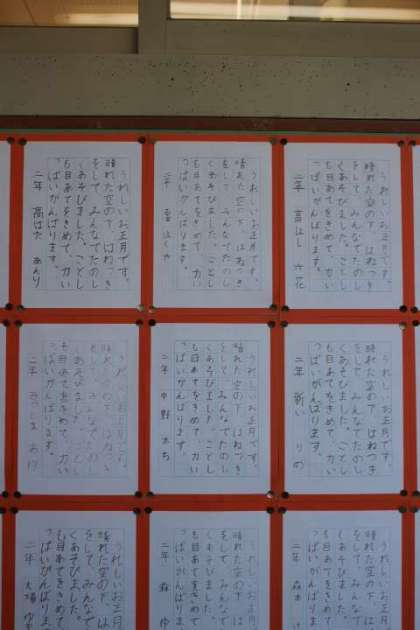 うれしいお正月です。
晴れた空の下 はねつき
をして みんなでたのし
くあそびました。ことし
も目あてをきめて 力い
っぱいがんばります。
二年 高はし 六花
うれしいお正月です。
晴れた空の下 はねつき
をして みんなでたのし
くあそびました。ことし
も目あてをきめて 力い
っぱいがんばります。
二年
うれしいお正月です。
晴れた空の下 はねつき
をして みんなでたのし
くあそびました。ことし
も目あてをきめて 力い
っぱいがんばります。
二年 高ばた あんり
うれしいお正月です。
晴れた空の下 はねつき
をして みんなでたのし
くあそびました。ことし
も目あてをきめて 力い
っぱいがんばります。
二年 新い りの
うれしいお正月です。
晴れた空の下 はねつき
をして みんなでたのし
くあそびました。ことし
も目あてをきめて 力い
っぱいがんばります。
二年 中野 太ち
うれしいお正月です。
晴れた空の下 はねつき
をして みんなでたのし
くあそびました。ことし
も目あてをきめて 力い
っぱいがんばります。
二年
うれしいお正月
晴れた空の下
をして みんなで
くあそびました
も目あてをきめて
っぱいがんばり
二年 森本
うれしいお正月
晴れた空の下
をして みんなで
くあそびました
も目あてをきめて
っぱいがんばり
二年 森 ゆ
うれしいお正月
晴れた空の下
をして みんなで
くあそびました
も目あてをきめて
っぱいがんばり
二年 大場